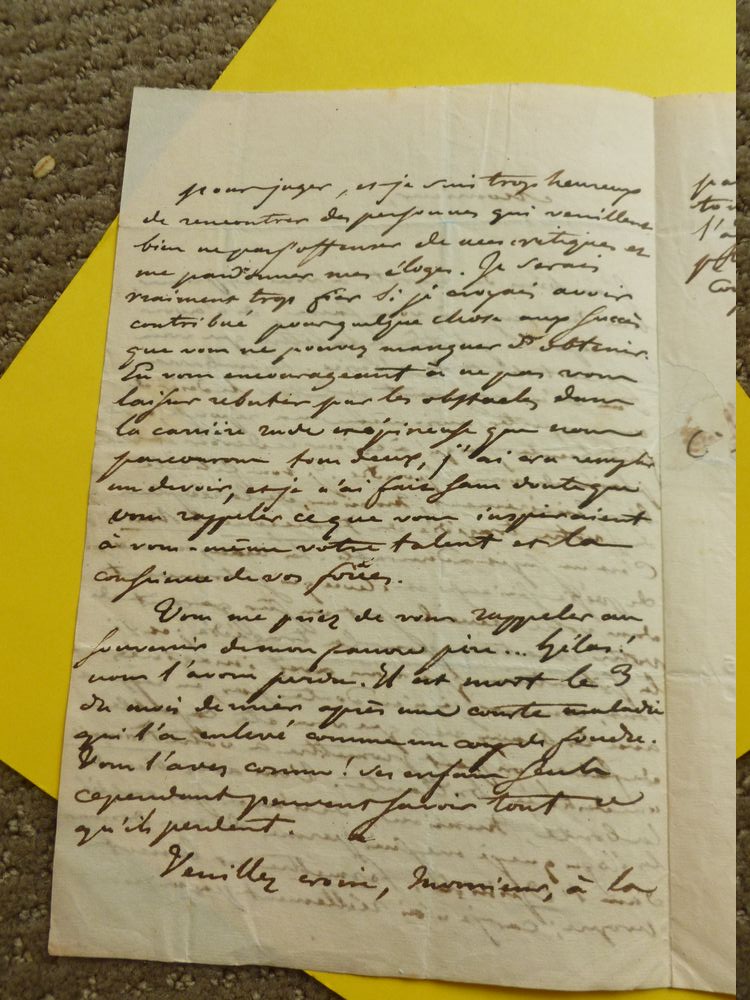 pour juger, et je suis trop heureux
de rencontrer des personnes qui veuillent
bien ne pas s'offenser de mes critiques et
me pardonner mes éloges. Je serais
vraiment trop fier si je croyais avoir
contribué pour quelque chose aux succès
que vous ne pouvez manquer d'obtenir.
En vous encourageant à ne pas vous
laisser rebuter par les obstacles dans
la carrière rude et épineuse que nous
parcourons tous deux, j'ai cru remplir
un devoir, et je n'ai fait sans doute que
vous rappeler ce que vous inspiraient
à vous-même votre talent et la
conscience de vos forces.
Vous me priez de vous rappeler au
souvenir de mon pauvre père... hélas!
nous l'avons perdu. Il est mort le 3
du mois dernier après une courte maladie
qui l'a enlevé comme un coup de foudre.
Vous l'avez connu! ses enfans seuls
cependant peuvent savoir tout ce
qu'ils perdent.
Veuillez croire, Monsieur, à la